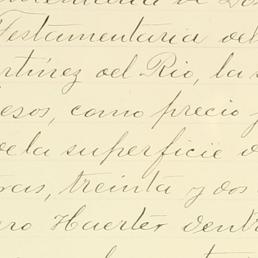 Testamentaria del
rtínez del Rio, la s
esos, como precio y
de la superficie d
ras, treinta y dos
ero Haerter dentr